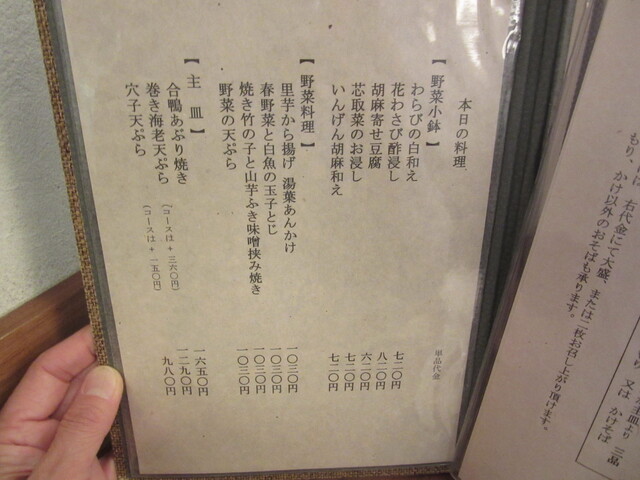 右代金にて大盛、または二枚お召し上がり頂けます。
もり、かけ以外のおそばも承ります。
主皿より 三品
又は かけそば
本日の料理 単品代金
【野菜小鉢】
わらびの白和え 七二〇円
花わさび酢浸し 八二〇円
胡麻寄せ豆腐 六二〇円
芯取菜のお浸し 七二〇円
いんげん胡麻和え 七二〇円
【野菜料理】
里芋から揚げ 湯葉あんかけ 一〇三〇円
春野菜と白魚の玉子とじ 一〇三〇円
焼き竹の子と山芋ふき味噌挟み焼き 一〇三〇円
野菜の天ぷら 一〇三〇円
【主皿】
合鴨あぶり焼き （コースは＋三六〇円） 一六五〇円
巻き海老天ぷら （コースは＋一五〇円） 一二九〇円
穴子天ぷら 九八〇円